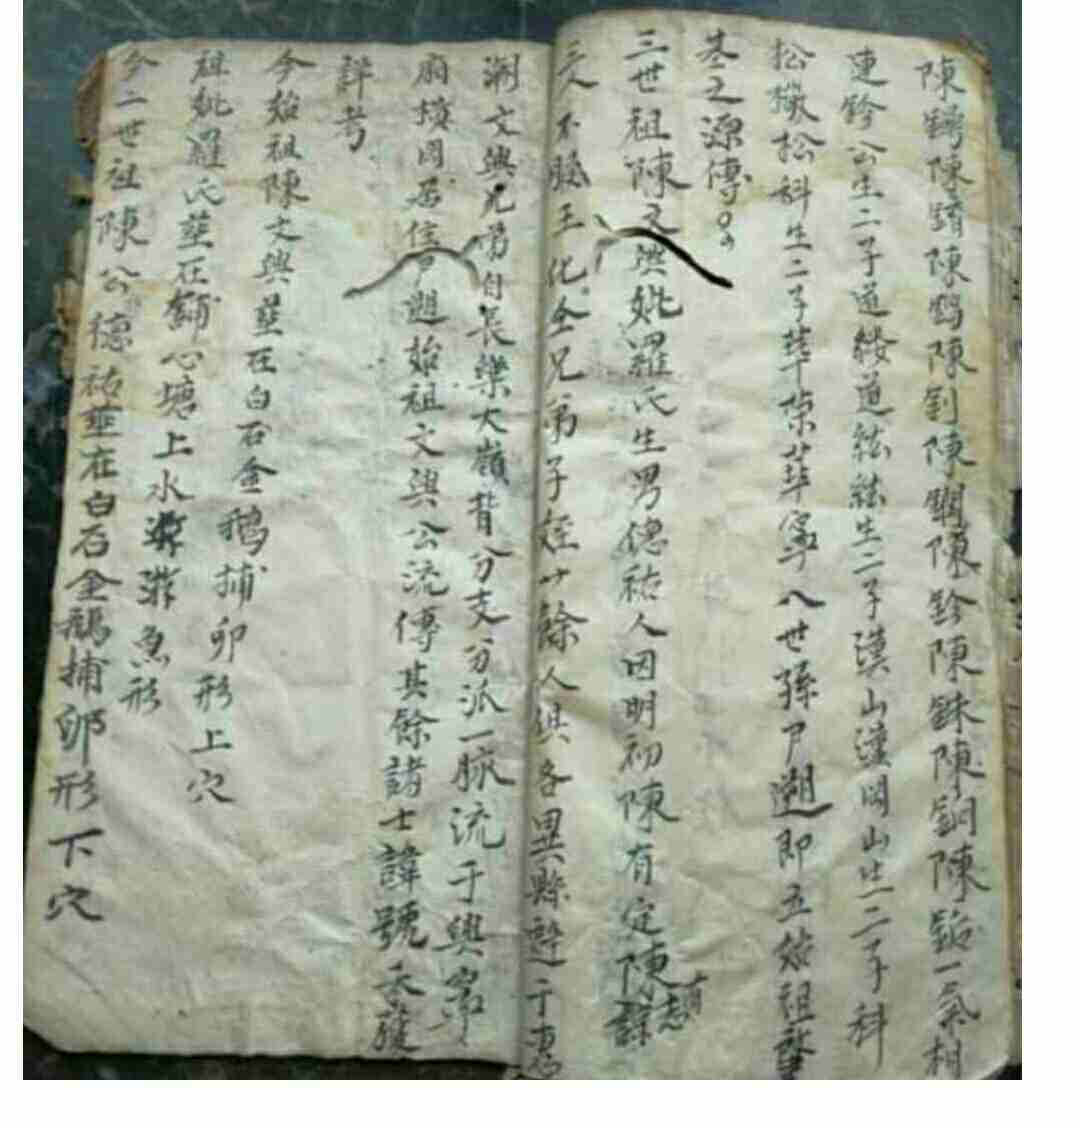 陳鑄陳鐈陳鎢陳釗陳鐗陳鈴陳銖陳銅陳鉛一氣相
連鈴公生二子道綾道紘紘生二子漢山漢岡山生二子科
松徽松科生二子華崇華寧八世孫尸遡即立始祖肇
基之源傳
三世祖陳文興妣羅氏生男德祐人因明初陳有定陳有諒志
三人不服王化全兄弟子姪廿餘人俱各異縣遊于惠
潮文興兄弟自長樂大嶺背分支分派一脉流于興寧
廟墳岡居住尸遡始祖文興公流傳其餘諸士諱號未獲
詳考
今始祖陳文興葬在白石金鵝捕卵形上穴
祖妣羅氏葬在鋪心塘上水游魚形
今二世祖陳公德祐葬在白石金鵝捕卵形下穴